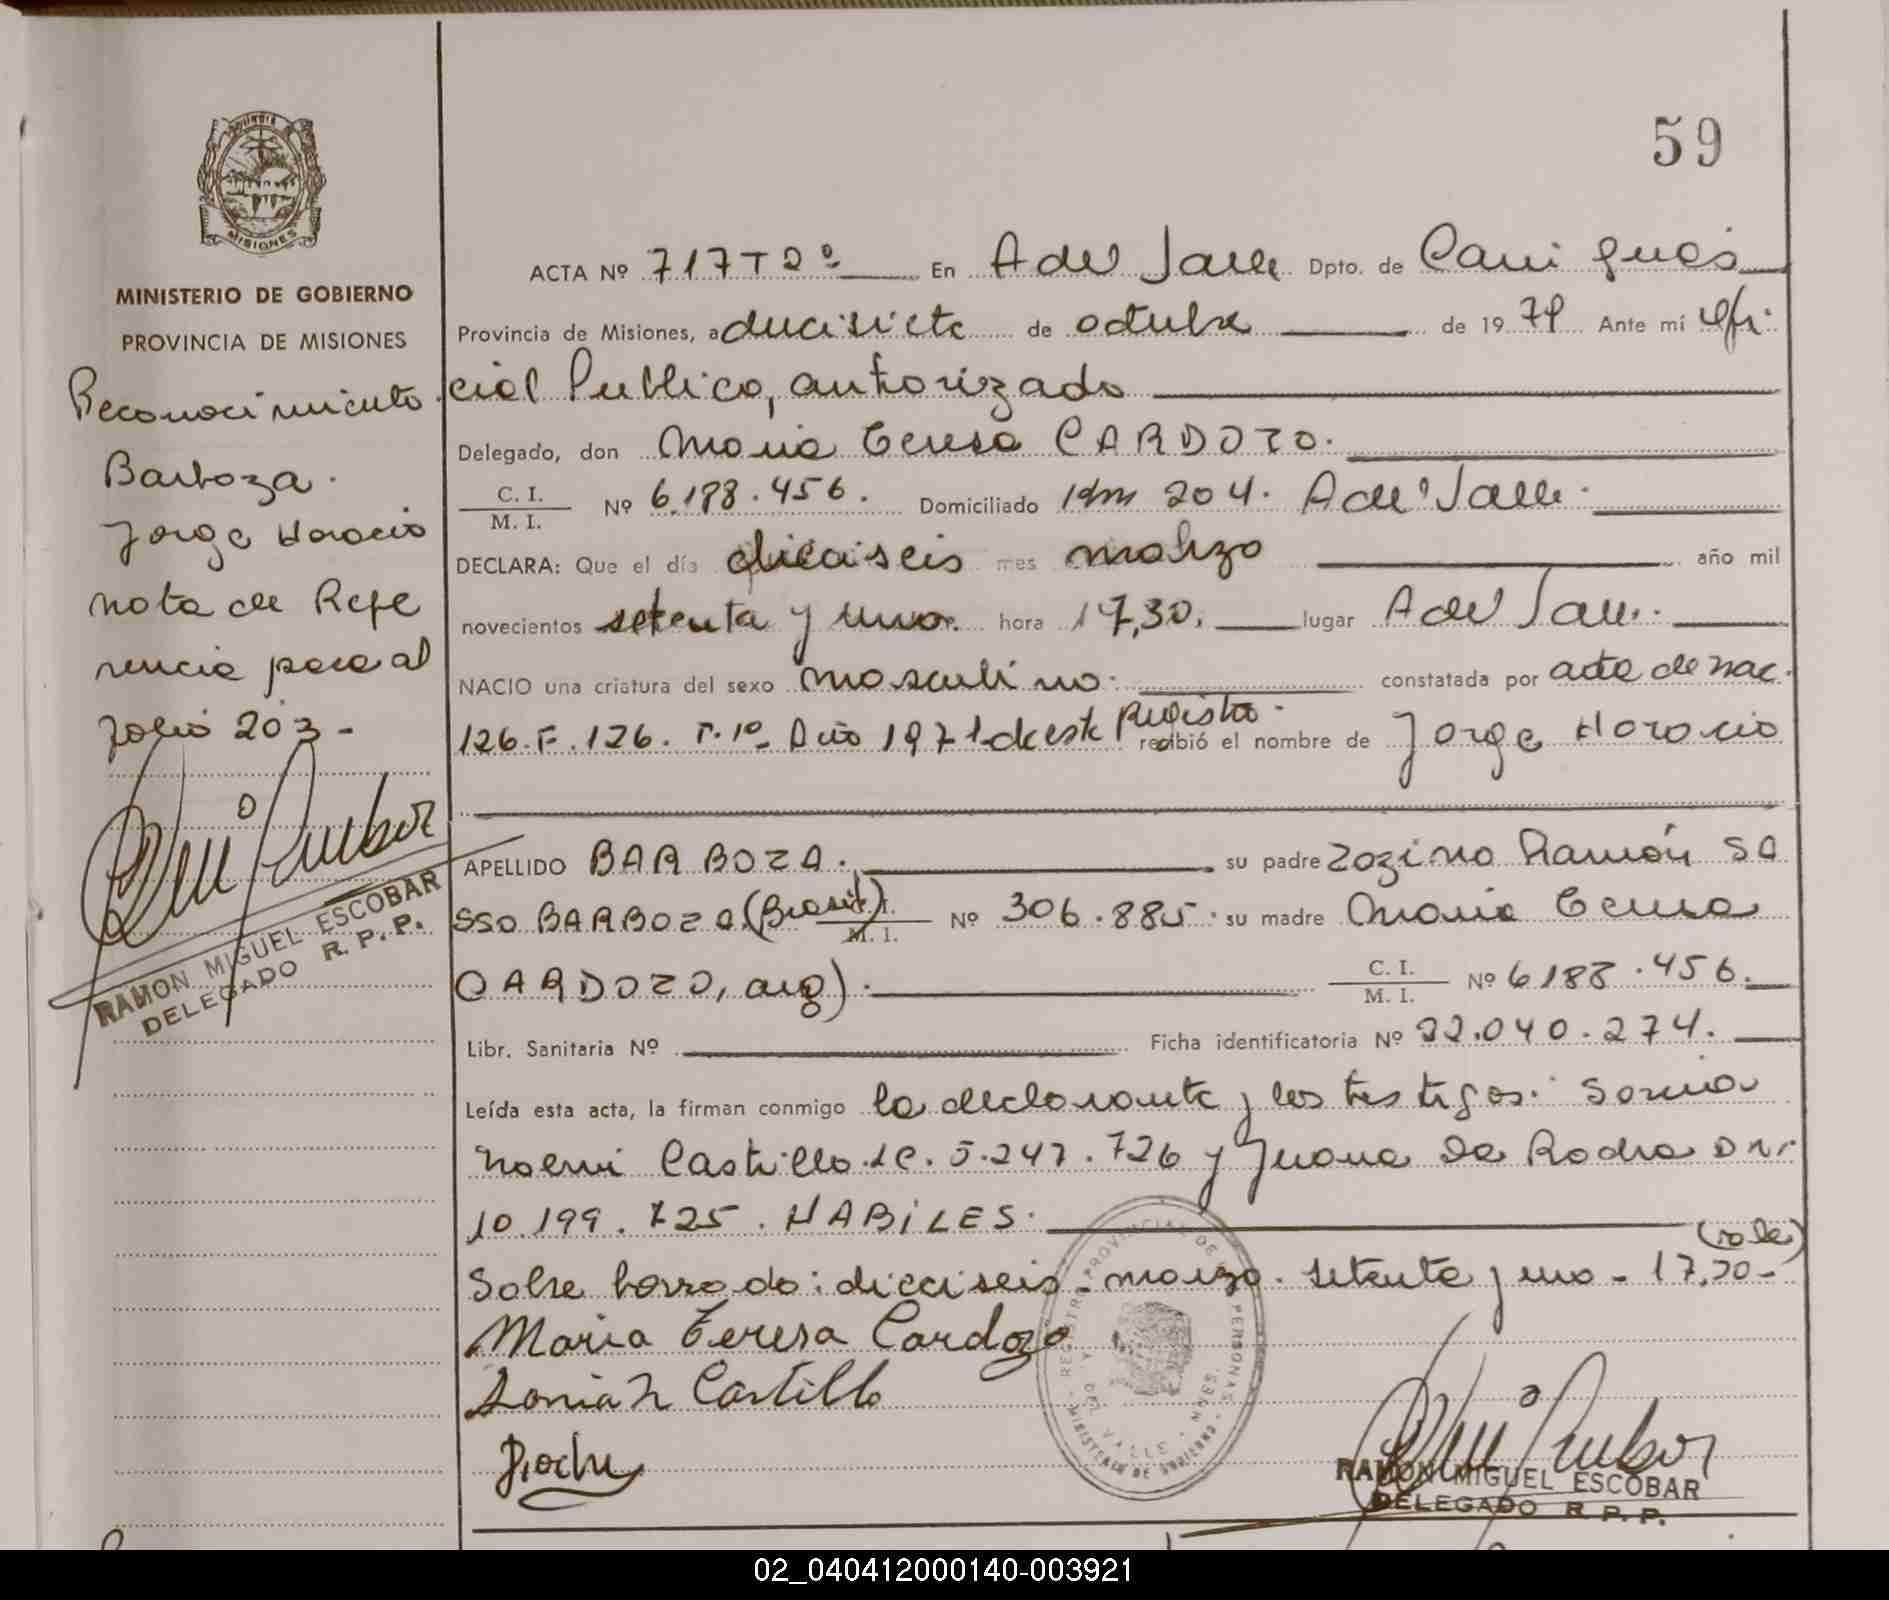 59
MISIONES
MINISTERIO DE GOBIERNO
PROVINCIA DE MISIONES
Reconocimiento.
Barboza.
Jorge Horacio
nota de Refe
rencia pasa al
folio 203-
RAMON MIGUEL ESCOBAR
DELEGADO R. P. P.
ACTA Nº 717 T 2º En A del Valle Dpto. de Cainguás
Provincia de Misiones, a diecisiete de octubre de 1974 Ante mí Ofi
cial Publico, autorizado
Delegado, don Maria Teresa CARDOZO.
C. I. / M. I. Nº 6.188.456. Domiciliado Km 204. A del Valle.
DECLARA: Que el día dieciseis mes marzo año mil
novecientos setenta y uno. hora 17,30. lugar A del Valle.
NACIO una criatura del sexo masculino. constatada por acta de nac.
126. F. 126. T. 1º Año 1971 de este Registro. recibió el nombre de Jorge Horacio
APELLIDO BARBOZA. su padre Zozimo Ramón SA
SSO BARBOZA (Brasil) M. I. Nº 306.885. su madre Maria Teresa
CARDOZO, arg). C. I. / M. I. Nº 6188.456.
Libr. Sanitaria Nº Ficha identificatoria Nº 22.040.274.
Leída esta acta, la firman conmigo la declarante y los testigos: Sonia
Noemi Castillo LC. 5.247.726 y Juana Da Rocha DNI
10.199.725. HABILES.
Sobre borrado: dieciseis - marzo. setenta y uno - 17,30- (vale)
Maria Teresa Cardozo
Sonia N Castillo
REGISTRO PROVINCIAL DE PERSONAS
MINISTERIO DE GOBIERNO
DEL VALLE - MNES.
RAMON MIGUEL ESCOBAR
DELEGADO R. P. P.
02_040412000140-003921